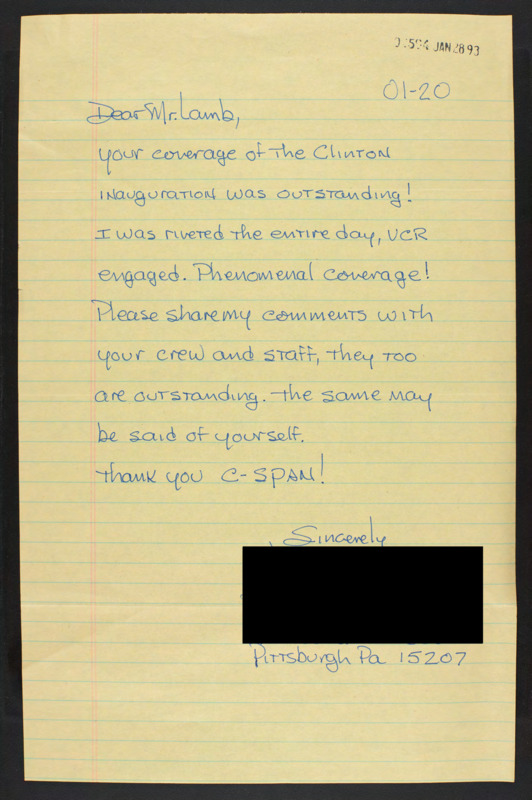 JAN 28 93
01-20
Dear Mr. Lamb,
your coverage of the Clinton
inauguration was outstanding!
I was riveted the entire day, VCR
engaged. Phenomenal coverage!
Please share my comments with
your crew and staff, they too
are outstanding. The same may
be said of yourself.
Thank you C-SPAN!
Sincerely
Pittsburgh Pa 15207